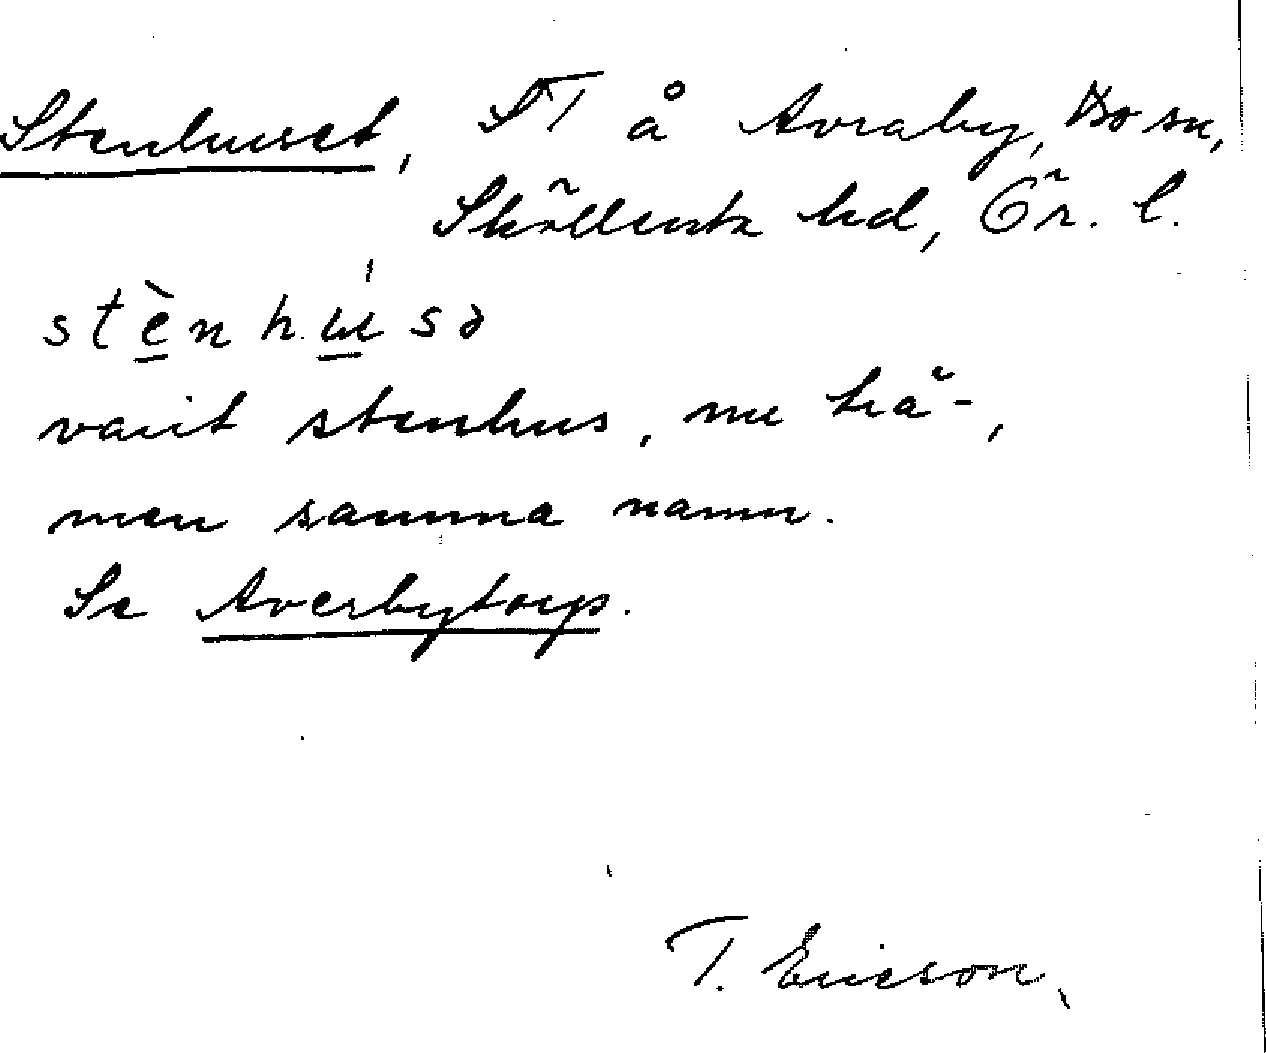 Stenhuset, ST å Avraby, Bo sn,
Sköllersta hd, Ör. l.
stènhúsə
varit stenhus, nu trä-,
men samma namn.
Se Averbytorp.
T. Ericson